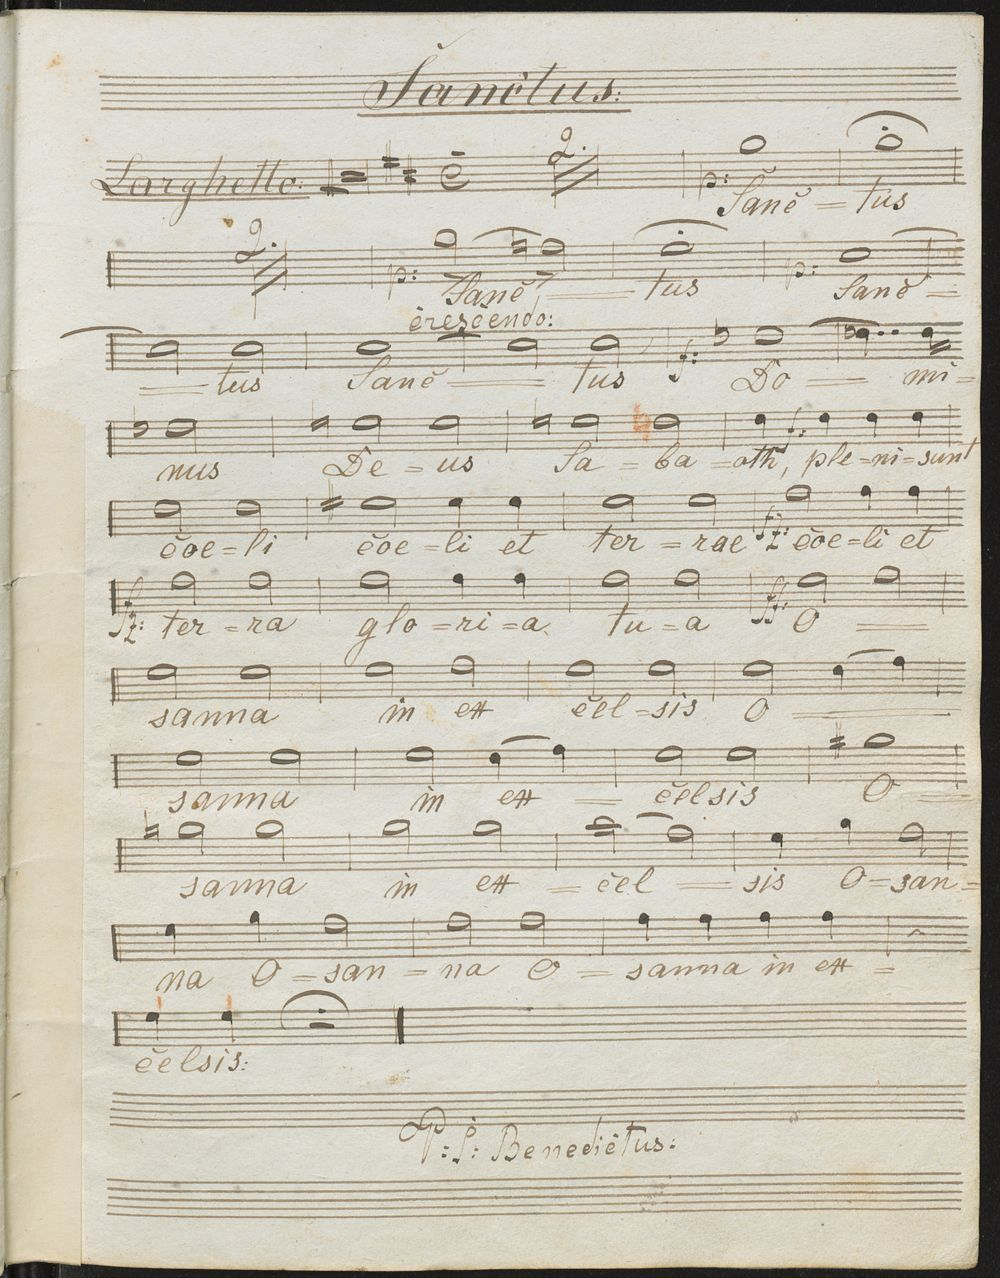 Sanctus:
Larghetto: 2. p: Sanc = tus
2. p: Sanc = tus p: Sanc =
crescendo:
= tus Sanc = tus f: Do = mi =
nus De = us Sa = ba = oth, f: ple = ni = sunt
coe = li coe = li et ter = rae fz: coe = li et
fz: ter = ra glo = ri = a tu = a ff: O =
sanna in ex cel = sis O =
sanna in ex = celsis O =
sanna in ex = cel = sis O = san =
na O = san = na O = sanna in ex =
celsis:
Benedictus: